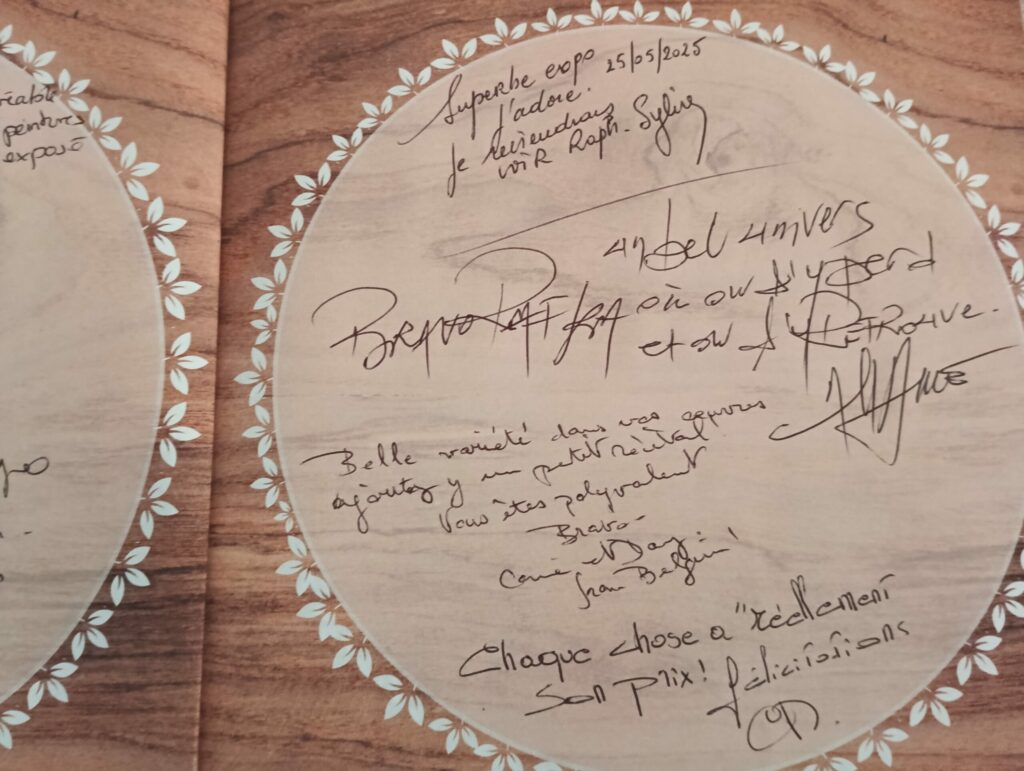 réable
peintures
exposé
Superbe expo 25/05/2025
J'adore.
Je reviendrais
voir Raph. Sylvie
un bel univers
Bravo où on s'y perd
et on s'y Retrouve.
Belle variété dans vos œuvres
ajoutez y un petit récital
Vous êtes polyvalent
Bravo
et Dany.
from Belgium!
Chaque chose a "réellement
son prix! félicitations